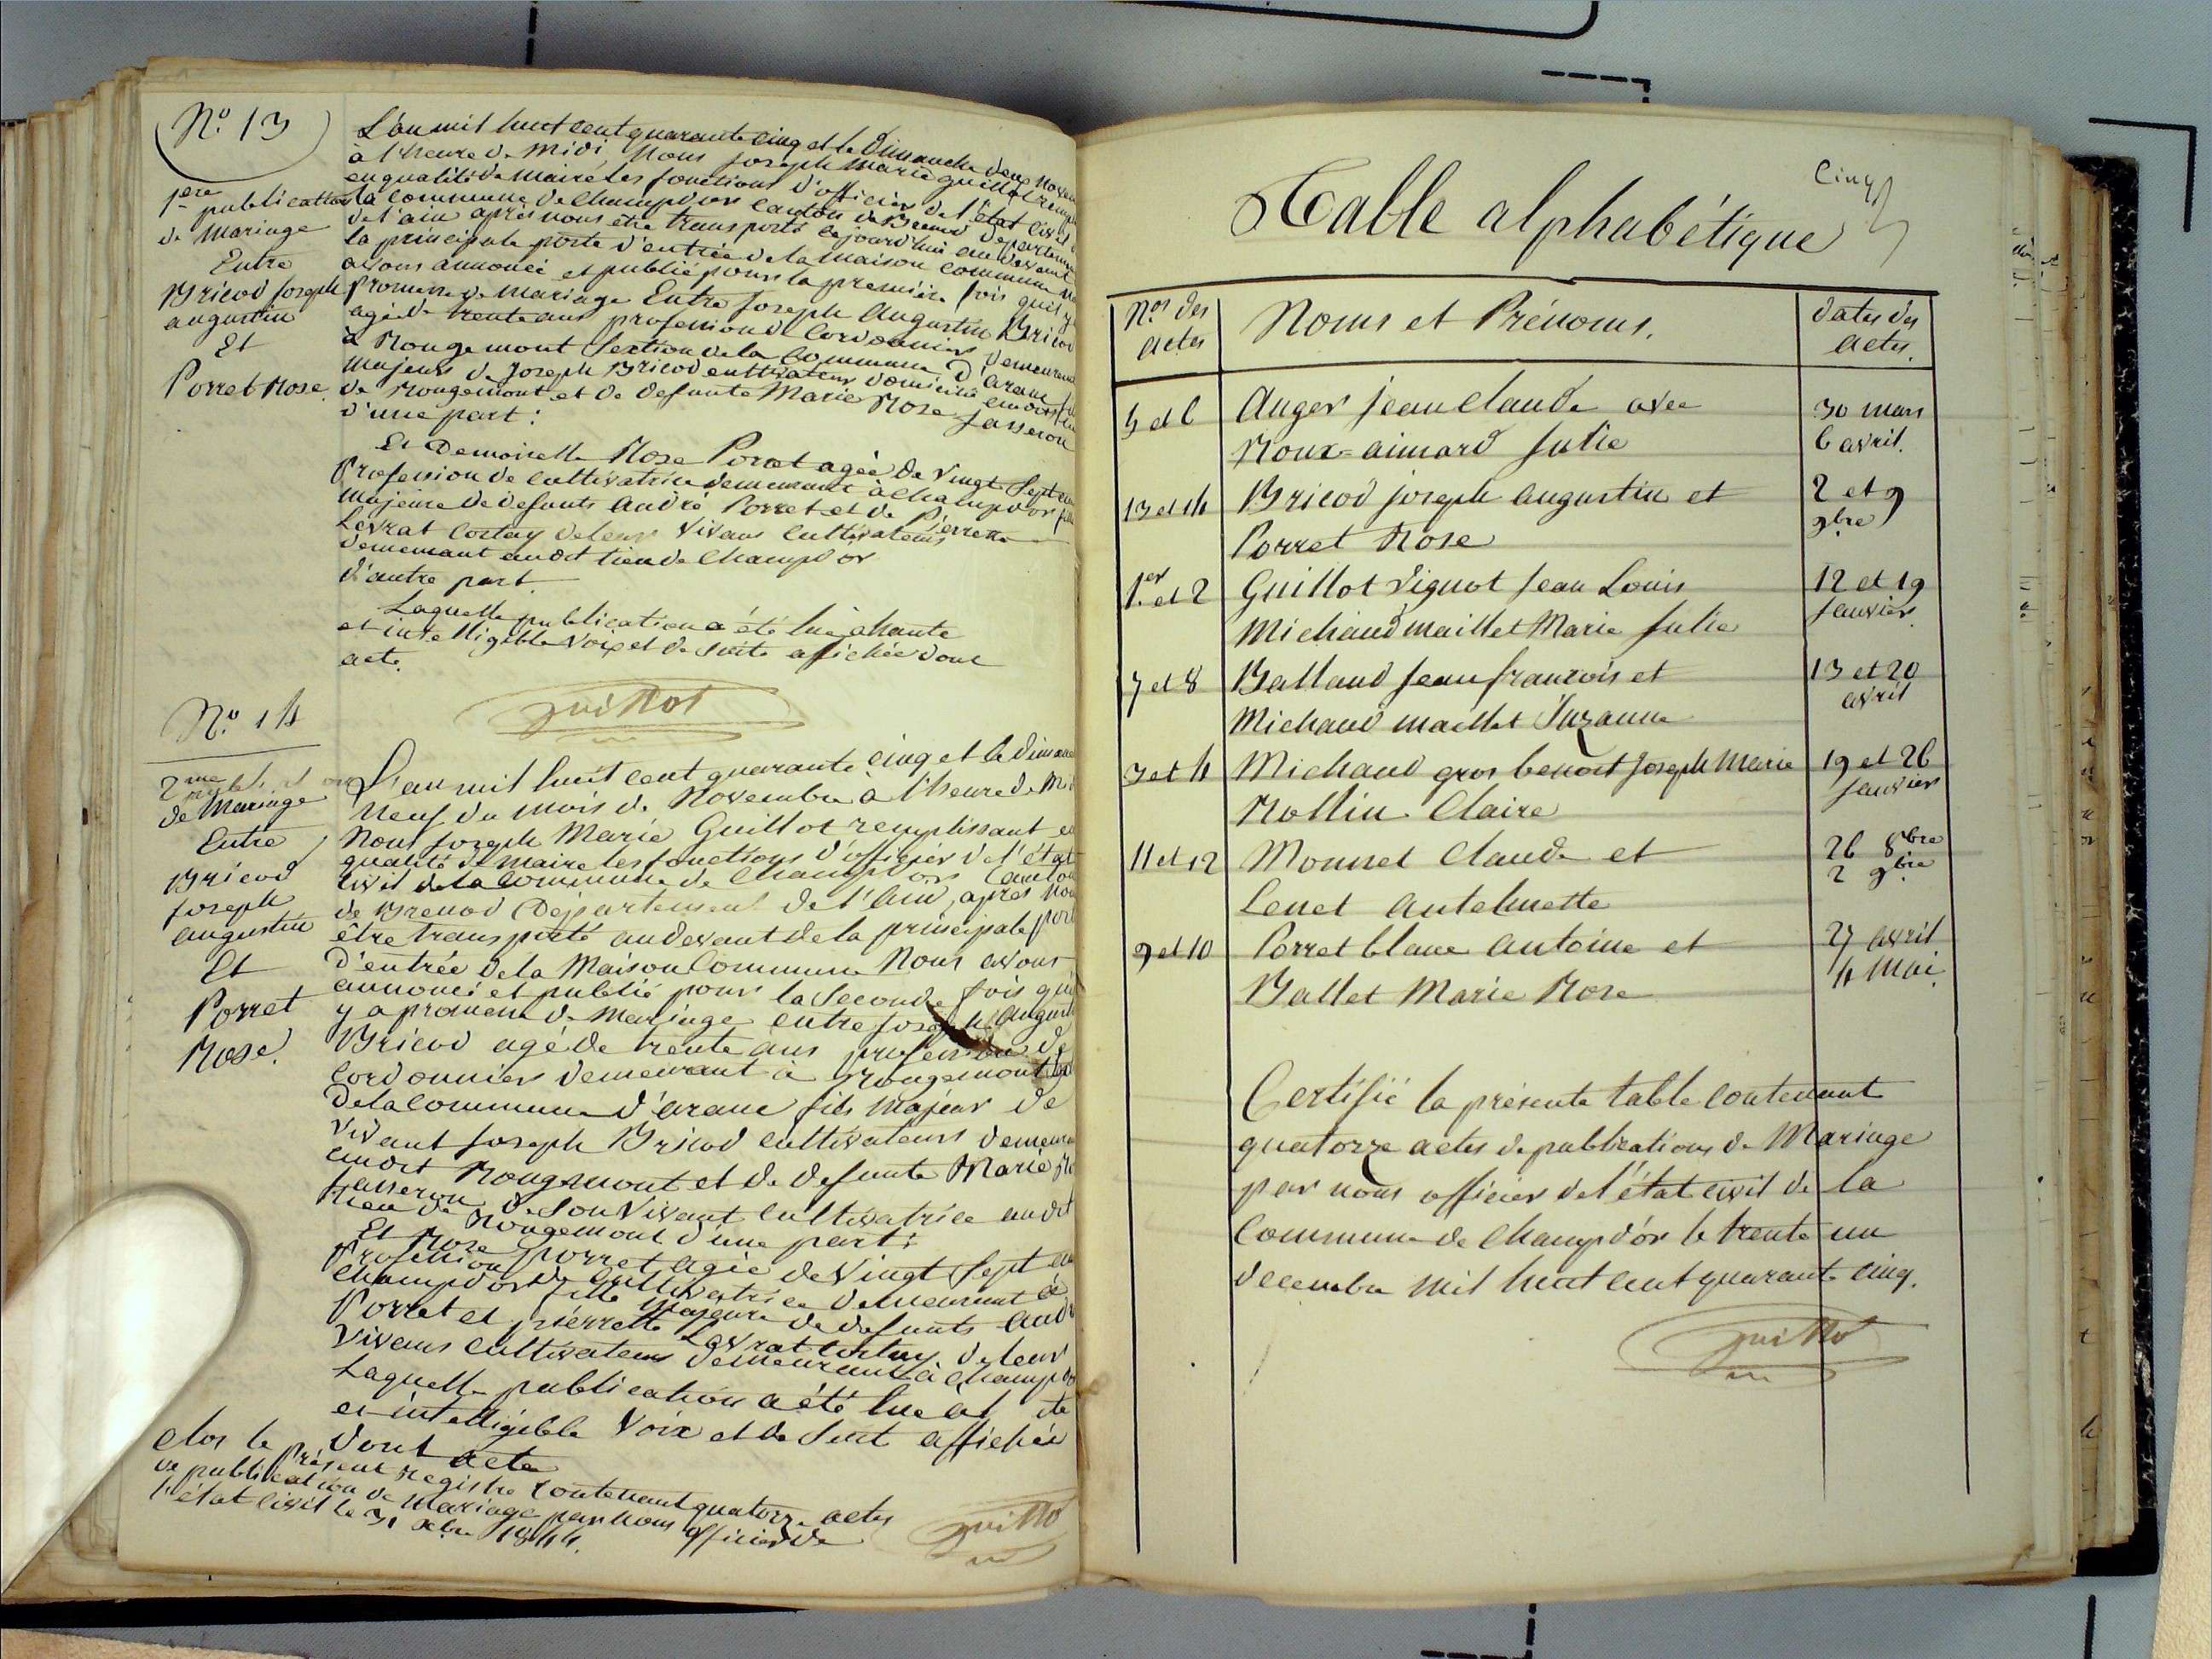 N.º 13
1ère
publication
de Mariage
Entre
Bricod Joseph
augustin
Et
Porret Rose.
L'an mil huit cent quarante cinq et le Dimanche deux Novem
à l'heure de Midi, Nous Joseph Marie Guillot rempli
en qualité de Maire les fonctions d'officier de l'état civil
la commune de Champdor canton de Brenod Departeme
de l'ain après nous être transporté ce jourd'hui au devant
la principale porte d'entrée de la Maison commune No
avons annoncé et publié pour la première fois qu'il y
Promesse de Mariage Entre Joseph Augustin Bricod
agé de trente ans profession de Cordonnier demeurant
à Rougemont Section de la Commune D'arane fi
majeur de Joseph Bricod cultivateur domicilié audit lieu
de Rougemont et de defunte Marie Rose Jasseron
d'une part:
Et Demoiselle Rose Porret agée de Vingt Sept an
Profession de Cultivatrice demeurant à Champdor fille
Majeure de defunts André Porret et de Pierrette
Levrat Costay de leur Vivans Cultivateurs
demeurant audit lieu de Champdor
d'autre part.
Laquelle publication a été lue à haute
et intelligible Voix et de suite affichée dont
acte.
Guillot
N.º 14
2me
de Mariage
Entre
Bricod
Joseph
augustin
Et
Porret
Rose.
L'an mil huit cent quarante cinq et le dimanc
neuf du mois de Novembre à l'heure de Mi
Nous Joseph Marie Guillot remplissant en
qualité de Maire les fonctions d'officier de l'état
civil de la commune de Champdor Canton
de Brenod Departement de l'Ain, après nou
être transporté au devant de la principale port
D'entrée de la Maison Commune Nous avons
annoncé et publié pour la Seconde fois qu'i
y a promesse de Mariage entre Joseph August
Bricod agé de trente ans profession de
Cordonnier demeurant à Rougemont
De la Commune d'arane fils Majeur de
Vivant Joseph Bricod Cultivateurs demeura
audit Rougemont et de defunte Marie Ro
Jasseron de Son Vivant Cultivatrice audit
lieu de Rougemont d'une part:
Et Rose Porret agée de Vingt Sept an
Profession de Cultivatrice demeurant à
Champdor fille Majeure de defunts And
Porret et Pierrette Levrat Costay de leur
Vivans Cultivateurs demeurant à Champdo
Laquelle publication a été lue
et intelligible Voix et de Suit affichée
dont acte
Clos le Présent registre contenant quatorze actes
de publication de Mariage par nous officier de
l'état civil le 31 Xbre 1844.
Guillo
Cinq
Table alphabétique
Nos des
actes
Noms et Prénoms.
dates des
actes.
5 et 6
Auger Jean Claude avec
30 mars
Roux-aimard Julie
6 avril.
13 et 14
Bricod Joseph augustin et
2 et 9
Porret Rose
9bre
1.er et 2
Guillot Vignot Jean Louis
12 et 19
Michaud maillet Marie Julie
Janvier.
7 et 8
Balland Jean francois et
13 et 20
Michaud maillet Suzanne
avril
3 et 4
Michaud gros benoit Joseph Marie
19 et 26
Rollin Claire
Janvier
11 et 12
Monnet Claude et
26 8bre
2 9bre
Lenet antelmette
9 et 10
Porret blanc antoine et
27 avril
Ballet Marie Rose
4 Mai.
Certifié la présente table contenant
quatorze actes de publications de Mariage
par nous officier de l'état civil de la
Commune de Champd'or le trente un
decembre mil huit cent quarante cinq.
Guillo